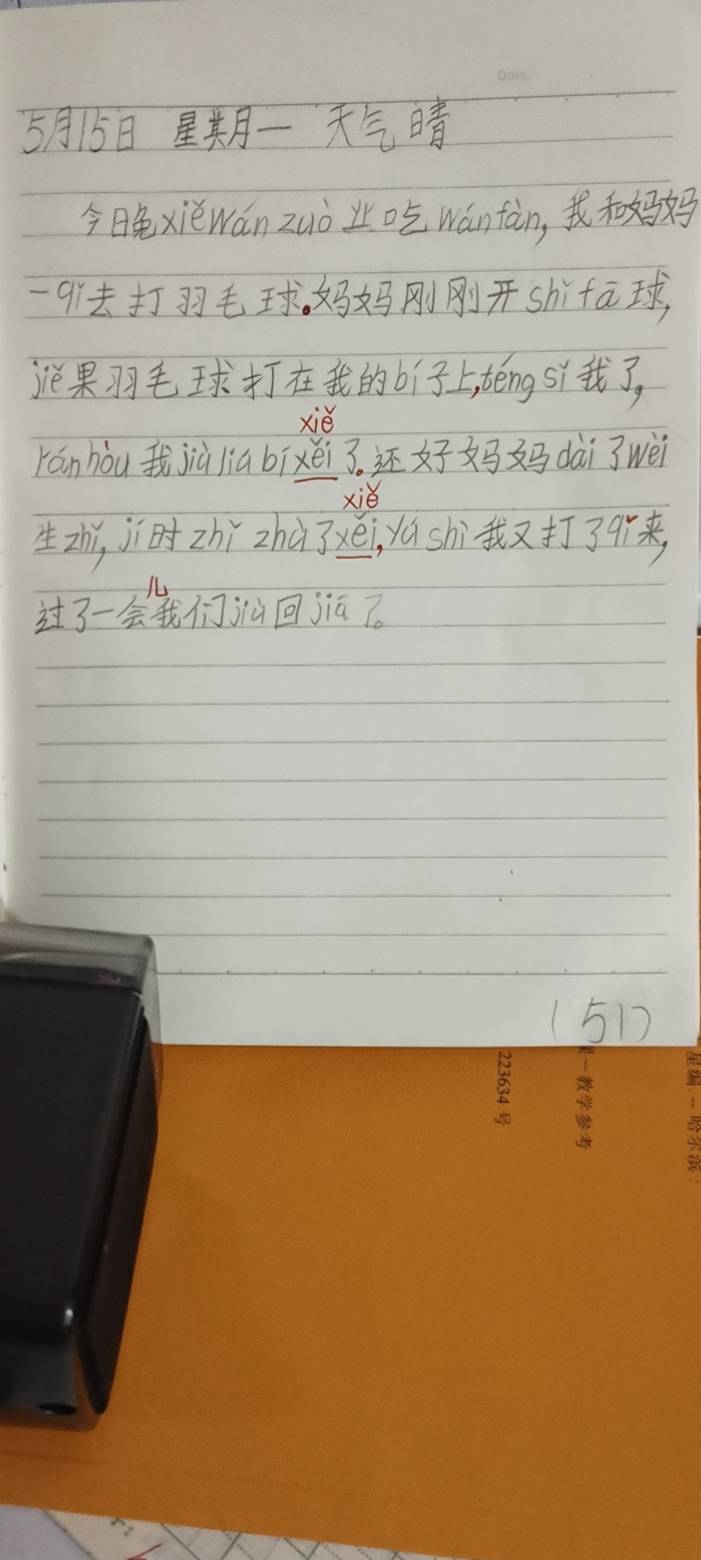 Date.
5月15日 星期一 天气晴
今日晚xiěwán zuò业吃wánfàn,我和妈妈
一qǐ去打羽毛球。妈妈刚刚开shǐ fā球,
jiě果羽毛球打在我的bí子上,téng sǐ我了,
xiě
rán hòu我jiù liú bí xěi了。还好妈妈dài了wèi
xiě
生zhǐ,jí时zhǐ zhù了xěi,yú shì我又打了qǐ来,
儿
过了一会我们jiù回jiā了。
(51)
223634号
一教学参考
星编.—哈尔滨: